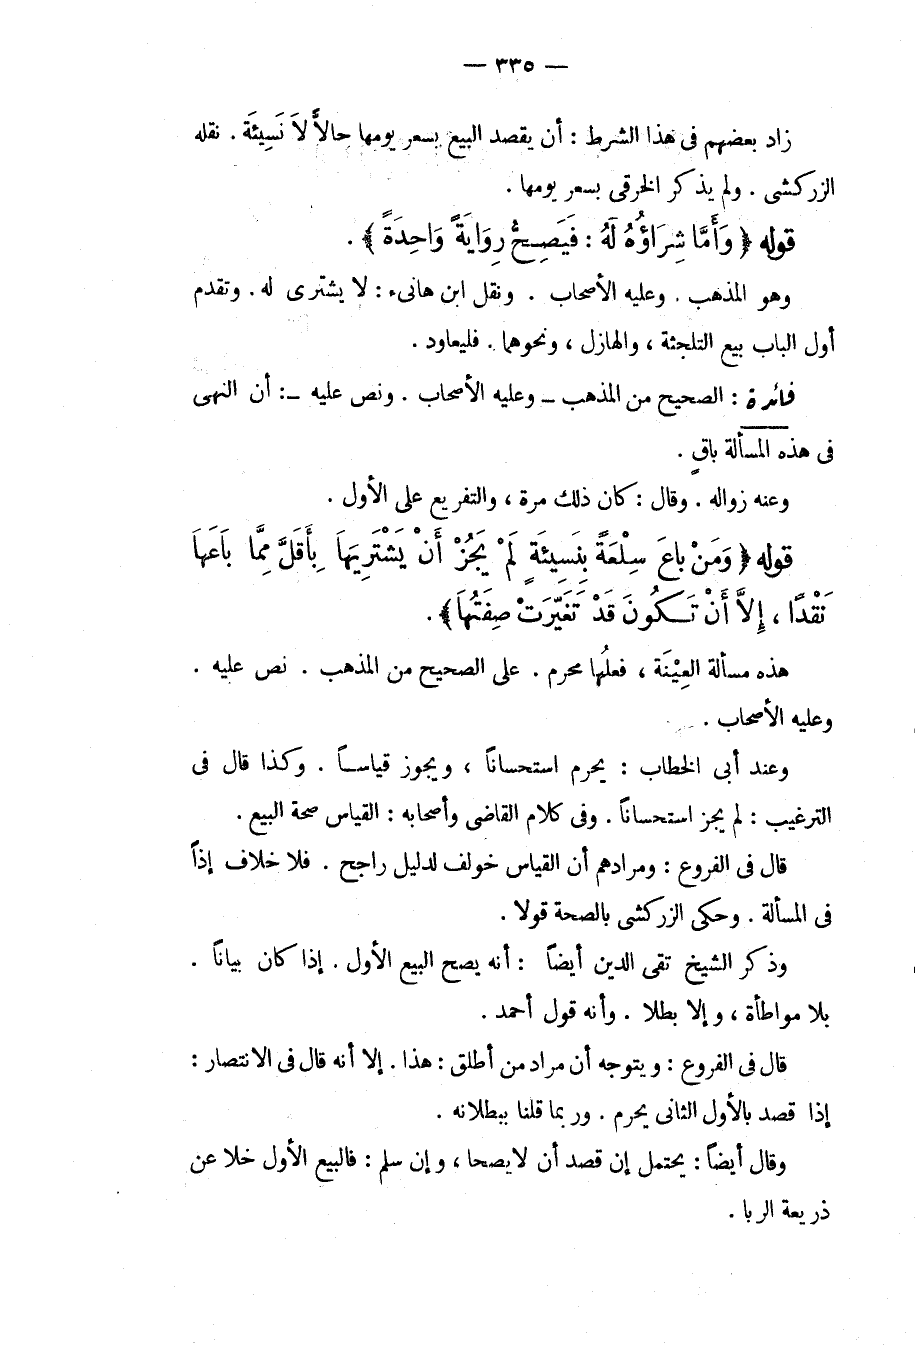 — ٣٣٥ —
زاد بعضهم فى هذا الشرط : أن يقصد البيع بسعر يومها حالاًّ لاَ نَسِيئَة . نقله
الزركشى . ولم يذكر الخرقى بسعر يومها .
قوله ﴿ وَأَمَّا شِرَاؤُهُ لَهُ : فَيَصِحُّ رِوَايَةً وَاحِدَةً ﴾ .
وهو المذهب . وعليه الأصحاب . ونقل ابن هانىء : لا يشترى له . وتقدم
أول الباب بيع التلجئة ، والهازل ، ونحوهما . فليعاود .
فائدة : الصحيح من المذهب ــ وعليه الأصحاب . ونص عليه ــ : أن النهى
فى هذه المسألة باقٍ .
وعنه زواله . وقال : كان ذلك مرة ، والتفريع على الأول .
قوله ﴿ وَمَنْ باعَ سِلْعَةً بِنَسِيئَةٍ لَمْ يَجُزْ أَنْ يَشْتَرِيهَاَ بِأَقَلَّ مِمَّا بَاَعَهاَ
نَقْدًا ، إِلاَّ أَنْ تَـكُونَ قَدْ تَغَيّرَتْ صِفَتُهَاَ ﴾ .
هذه مسألة العِيْنَة ، فعلُها محرم . على الصحيح من المذهب . نص عليه .
وعليه الأصحاب .
وعند أبى الخطاب : يحرم استحساناً ، ويجوز قياسـاً . وكذا قال فى
الترغيب : لم يجز استحساناً . وفى كلام القاضى وأصحابه : القياس صحة البيع .
قال فى الفروع : ومرادهم أن القياس خولف لدليل راجح . فلا خلاف إذاً
فى المسألة . وحكى الزركشى بالصحة قولا .
وذكر الشيخ تقى الدين أيضاً : أنه يصح البيع الأول . إذا كان بياناً .
بلا مواطأة ، وإلا بطلا . وأنه قول أحمد .
قال فى الفروع : ويتوجه أن مراد من أطلق : هذا . إلا أنه قال فى الانتصار :
إذا قصد بالأول الثانى يحرم . وربما قلنا ببطلانه .
وقال أيضاً : يحتمل إن قصد أن لا يصحا ، وإن سلم : فالبيع الأول خلا عن
ذريعة الربا .